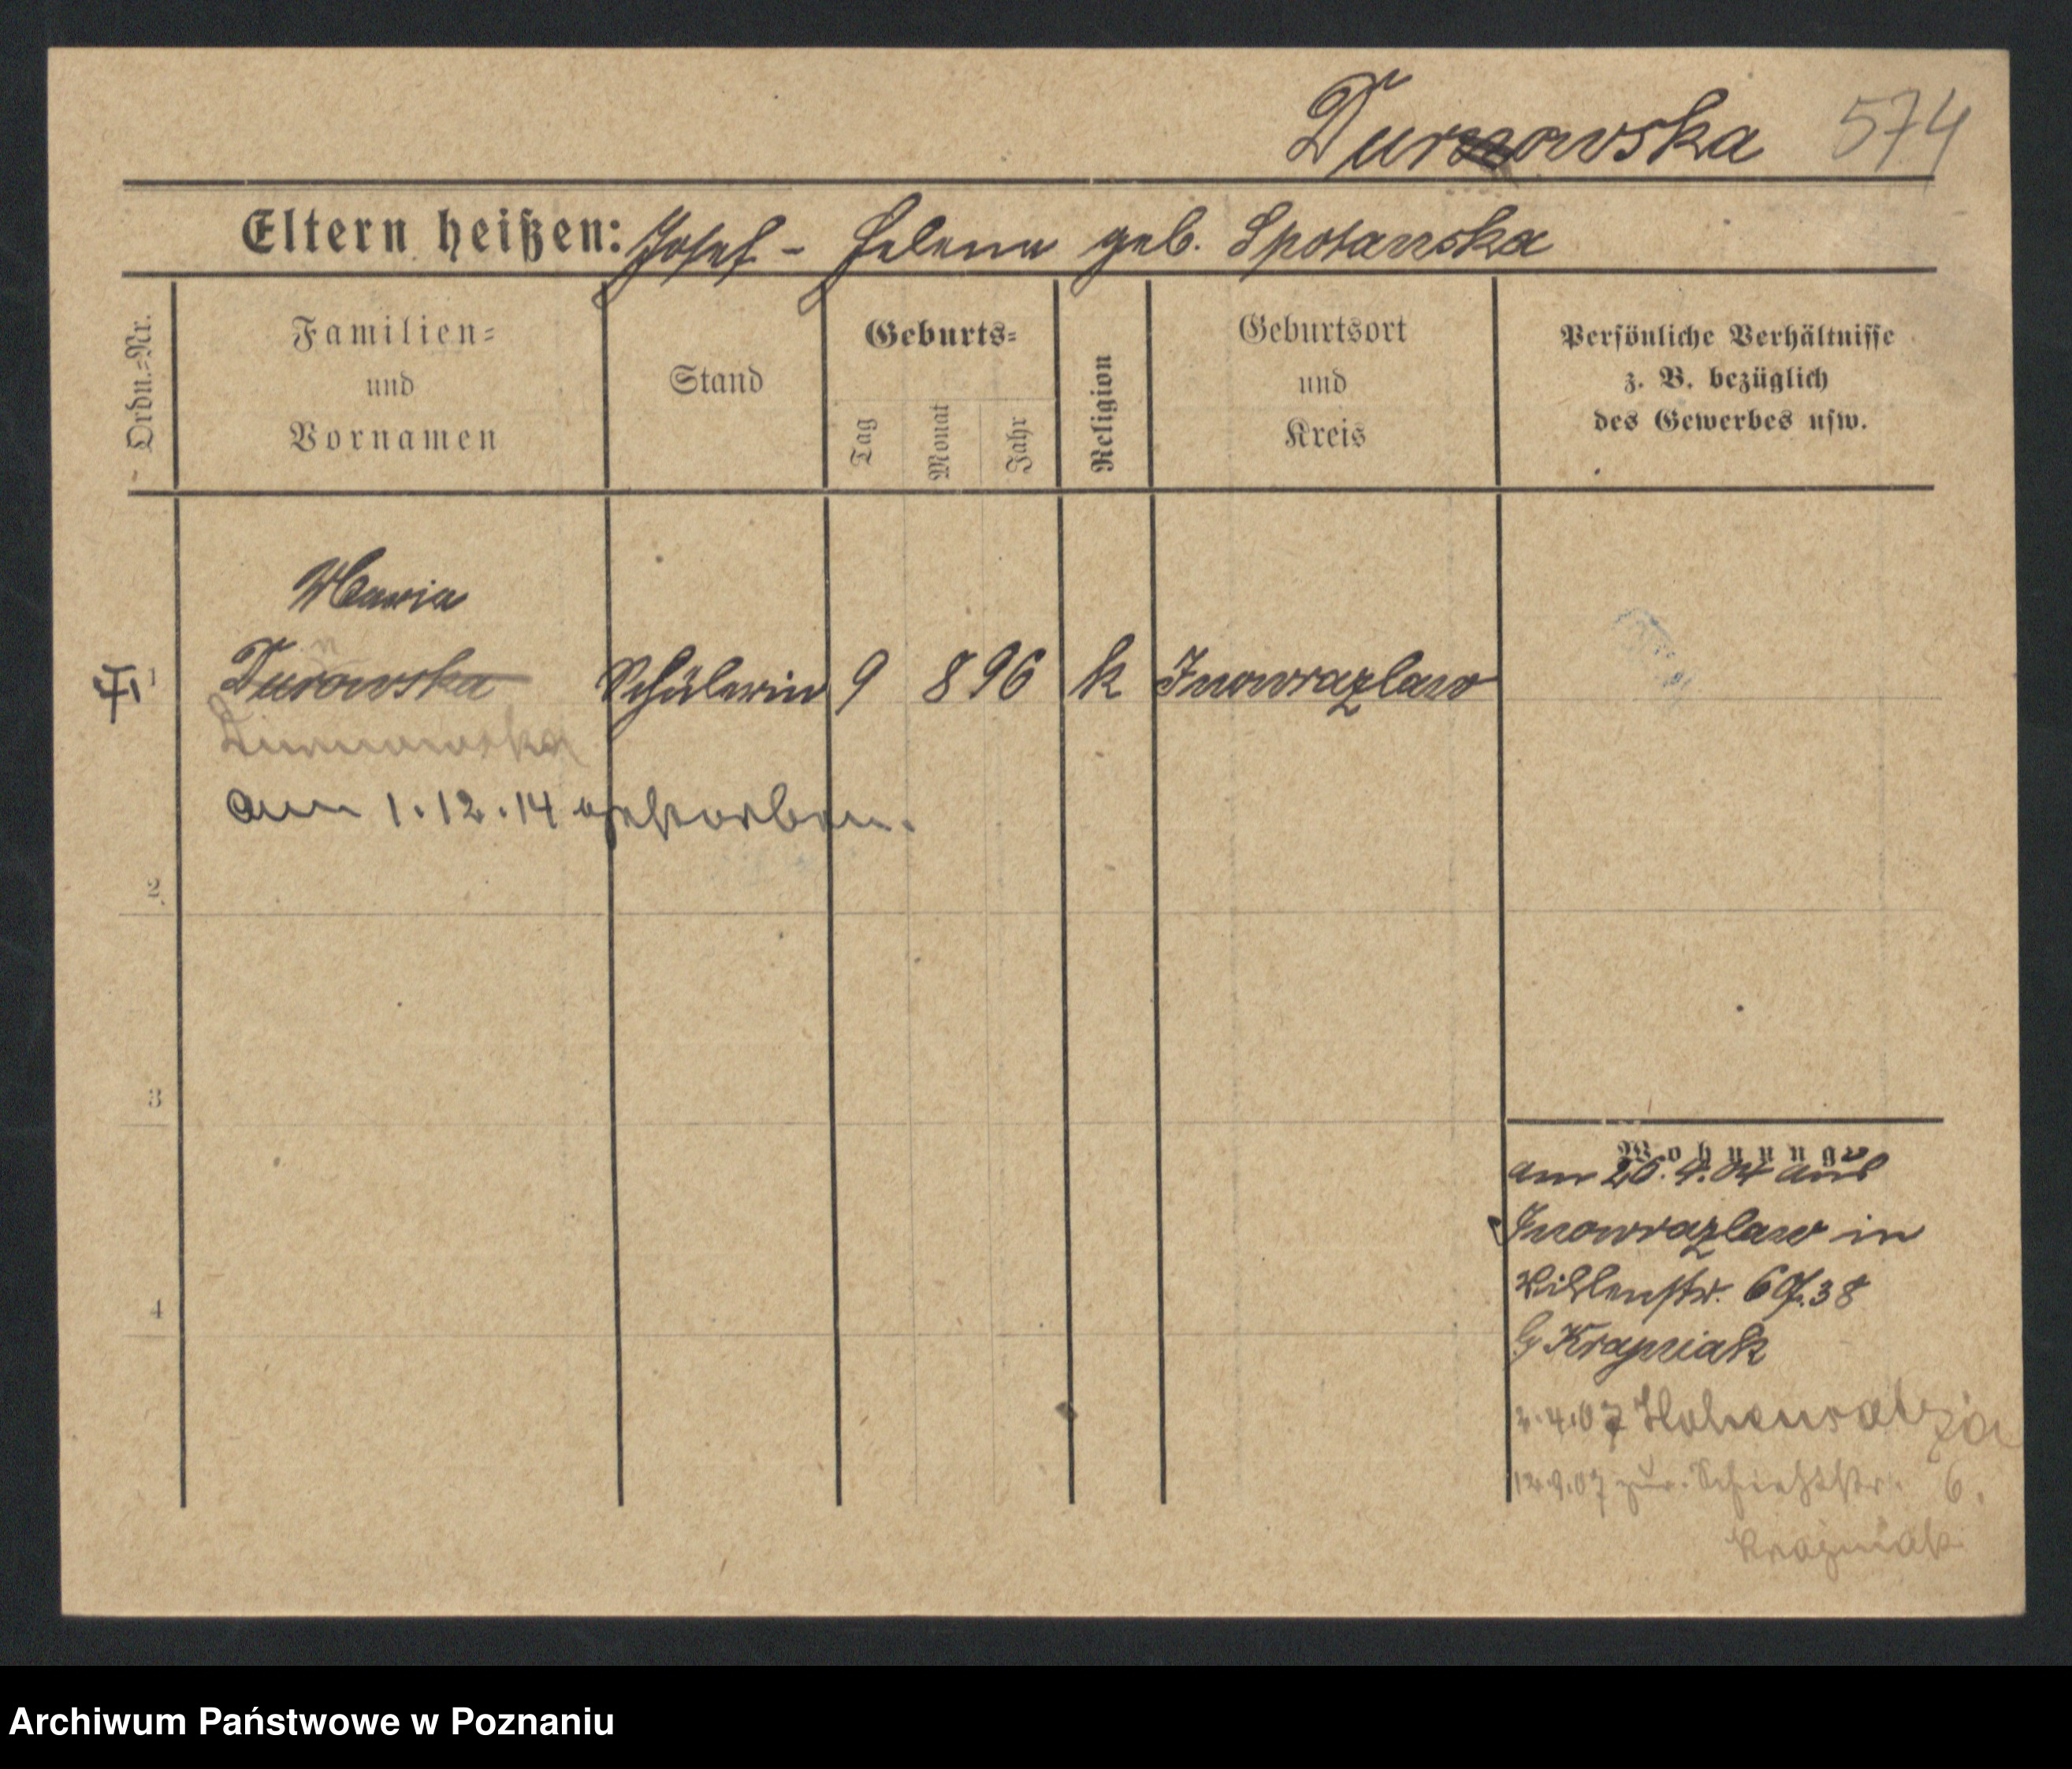 Durnowska 574
Eltern heißen: Josef - Helena geb. Spotanska
Ordn.-Nr.
Familien=
und
Vornamen
Stand
Geburts=
Tag
Monat
Jahr
Religion
Geburtsort
und
Kreis
Persönliche Verhältnisse
z. B. bezüglich
des Gewerbes usw.
Maria
1 Durowska Schülerin 9 8 96 k Inowrazlaw
Durnowska
am 1.12.14 gestorben.
2
3
4
Wohnung
am 20.4.04 aus
Inowrazlaw in
6 38
2.4.07 Hohensalza
12.9.07 zur. 6.